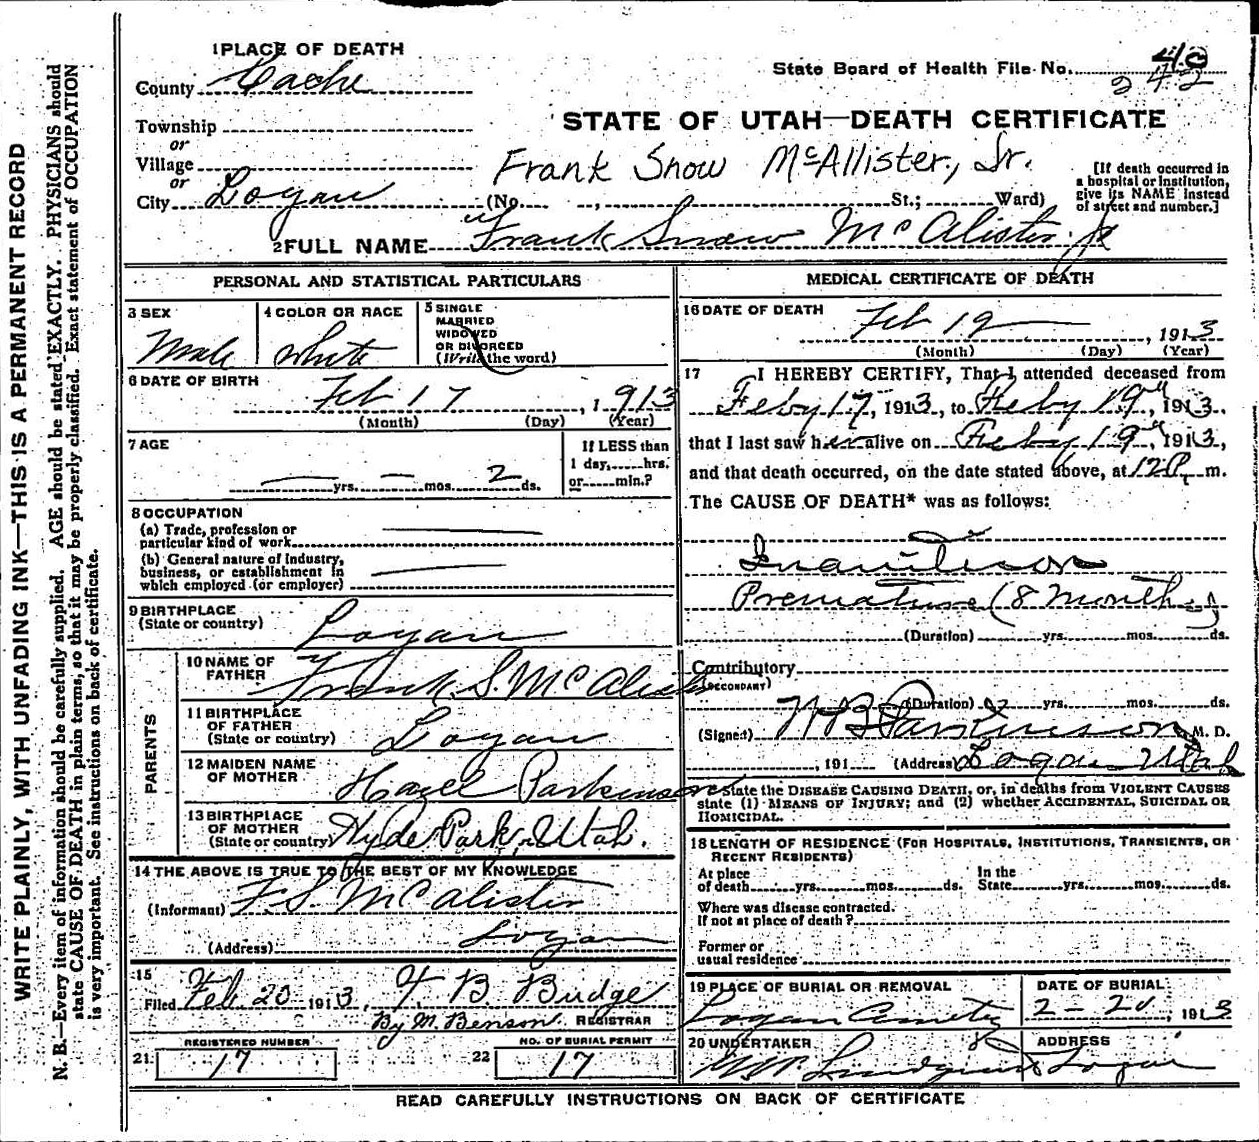 WRITE PLAINLY, WITH UNFADING INK—THIS IS A PERMANENT RECORD
N. B.—Every item of information should be carefully supplied. AGE should be stated EXACTLY. PHYSICIANS should
state CAUSE OF DEATH in plain terms, so that it may be properly classified. Exact statement of OCCUPATION
is very important. See instructions on back of certificate.
1 PLACE OF DEATH
County Cache
Township
or
Village
or
City Logan
State Board of Health File No. 40
242
STATE OF UTAH—DEATH CERTIFICATE
Frank Snow McAllister, Jr.
(No. , St.; Ward)
[If death occurred in
a hospital or institution,
give its NAME instead
of street and number.]
2 FULL NAME Frank Snow McAlister Jr
PERSONAL AND STATISTICAL PARTICULARS
3 SEX
Male
4 COLOR OR RACE
White
5 SINGLE
MARRIED
WIDOWED
OR DIVORCED
(Write the word)
6 DATE OF BIRTH
Feb 17, 1913
(Month) (Day) (Year)
7 AGE
— yrs. — mos. 2 ds.
If LESS than
1 day, hrs.
or min.?
8 OCCUPATION
(a) Trade, profession or
particular kind of work
(b) General nature of industry,
business, or establishment in
which employed (or employer)
9 BIRTHPLACE
(State or country) Logan
PARENTS
10 NAME OF
FATHER Frank S. McAlister
11 BIRTHPLACE
OF FATHER
(State or country) Logan
12 MAIDEN NAME
OF MOTHER Hazel Parkinson
13 BIRTHPLACE
OF MOTHER
(State or country) Hyde Park, Utah.
14 THE ABOVE IS TRUE TO THE BEST OF MY KNOWLEDGE
(Informant) F. S. McAlister
(Address) Logan
15
Filed Feb 20 1913, F B Budge
By M. Benson REGISTRAR
21 REGISTERED NUMBER
17
22 NO. OF BURIAL PERMIT
17
MEDICAL CERTIFICATE OF DEATH
16 DATE OF DEATH
Feb 19, 1913
(Month) (Day) (Year)
17 I HEREBY CERTIFY, That I attended deceased from
Feby 17, 1913, to Feby 19th, 1913,
that I last saw her alive on Feby 19th, 1913,
and that death occurred, on the date stated above, at 12 P. m.
The CAUSE OF DEATH* was as follows:
Inanition
Premature (8 Months)
(Duration) yrs. mos. ds.
Contributory
(SECONDARY)
(Duration) yrs. mos. ds.
(Signed) W B Parkinson M. D.
, 191 (Address) Logan Utah
state the DISEASE CAUSING DEATH, or, in deaths from VIOLENT CAUSES
state (1) MEANS OF INJURY; and (2) whether ACCIDENTAL, SUICIDAL OR
HOMICIDAL.
18 LENGTH OF RESIDENCE (FOR HOSPITALS, INSTITUTIONS, TRANSIENTS, OR
RECENT RESIDENTS)
At place
of death yrs. mos. ds.
In the
State yrs. mos. ds.
Where was disease contracted.
If not at place of death?
Former or
usual residence
19 PLACE OF BURIAL OR REMOVAL
Logan Cemetery
DATE OF BURIAL
2-20, 1913
20 UNDERTAKER
Lundquist
ADDRESS
Logan
READ CAREFULLY INSTRUCTIONS ON BACK OF CERTIFICATE